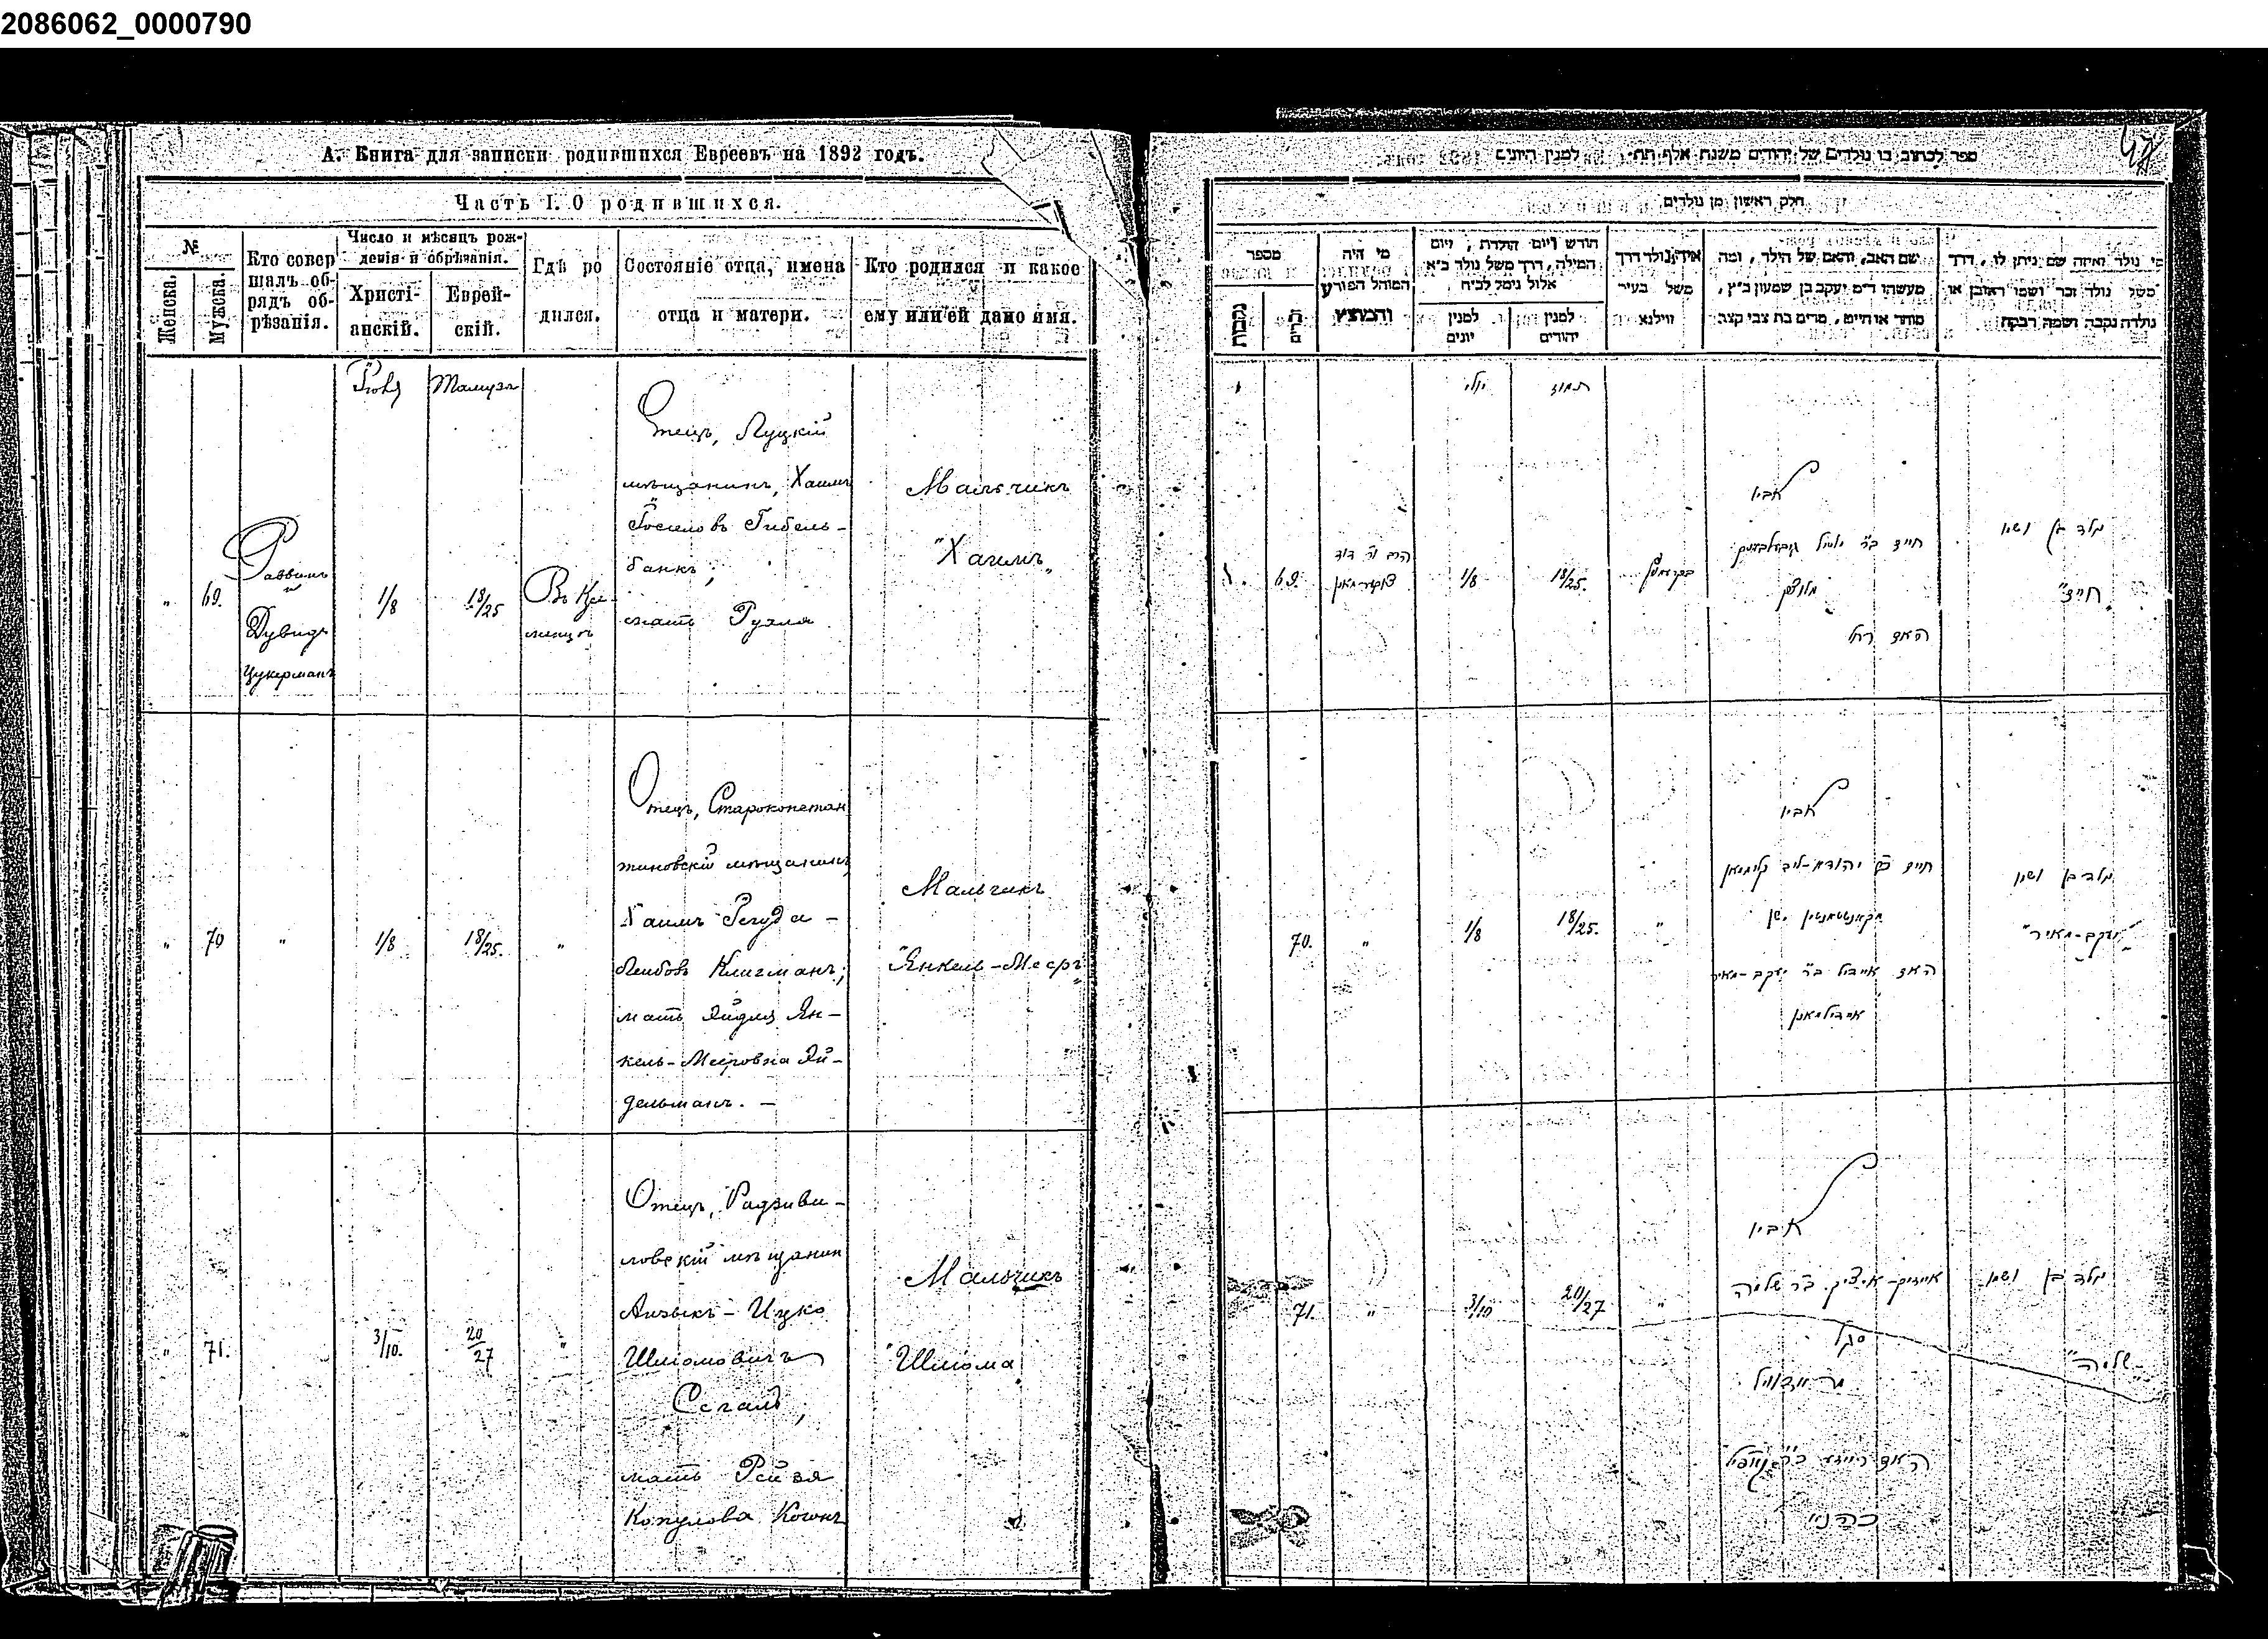 2086062_0000790
А. Книга для записки родившихся Евреевъ на 1892 годъ.
Часть I. О родившихся.
№
Женска.
Мужска.
Кто совершалъ обрядъ обрѣзанія.
Число и мѣсяцъ рожденія и обрѣзанія.
Христіанскій.
Еврейскій.
Гдѣ родился.
Состояніе отца, имена отца и матери.
Кто родился и какое ему или ей дано имя.
Тамузъ
" 69.
Раввинъ
Дувидъ
Цукерманъ
1/8
18/25
Въ Кре-
менцѣ
Отецъ, Луцкій
мѣщанинъ, Хаимъ
Іосиповъ Гибель-
банкъ;
мать Рухля
Мальчикъ
"Хаимъ„
" 70 " 1/8 18/25. "
Отецъ, Староконстан
тиновскій мѣщанинъ
Хаимъ Іегуда-
Лейбовъ Клигманъ;
мать Эйдля Ян-
кель-Меировна Эй-
дельманъ. —
Мальчикъ
"Янкель-Меєръ"
" 71. 3/10. 20/27 "
Отецъ, Радзиви-
ловскій мѣщанин
Айзыкъ-Ицко
Шлиомовичъ
Сегалъ,
мать Рейзя
Копулова Когонъ
Мальчикъ
"Шлиома
ספר לכתוב בו נולדים של יהודים משנת אלף תת׳ למנין היונים
חלק ראשון מן נולדים
מספר
נקבות
זכרים
מי היה
המוהל הפורע
והמוצץ
חודש ויום הולדת, ויום
המילה, דרך משל נולד כ״א
אלול נימל לכ״ח
למנין
יונים
למנין
יהודים
איה נולד דרך
משל בעיר
ווילנא
שם האב, והאם של הילד, ומה
מעשהו ד״מ יעקב בן שמעון כ״ץ,
סוחר או חייט, מרים בת צבי קצב
מי נולד ואיזה שם ניתן לו, דרך
משל נולד זכר ושמו ראובן או
נולדה נקבה ושמה רבקה
יולי
תמוז
69.
הרב ר׳ דוד
צוקערמאן
1/8
18/25.
אביו
האם רחל
נולד בן ושמו
"חיים"
70. " 1/8 18/25. "
אביו
חיים ב״ר יהודא-ליב קליגמאן
האם איידיל ב״ר יעקב-מאיר
איידילמאן
נולד בן ושמו
"יעקב-מאיר"
71. " 3/10 20/27 "
אביו
אייזיק-איציק ב״ר שלמה
סגל
האם רייזא ב״ר קאפיל
כהן
נולד בן ושמו
"שלמה"